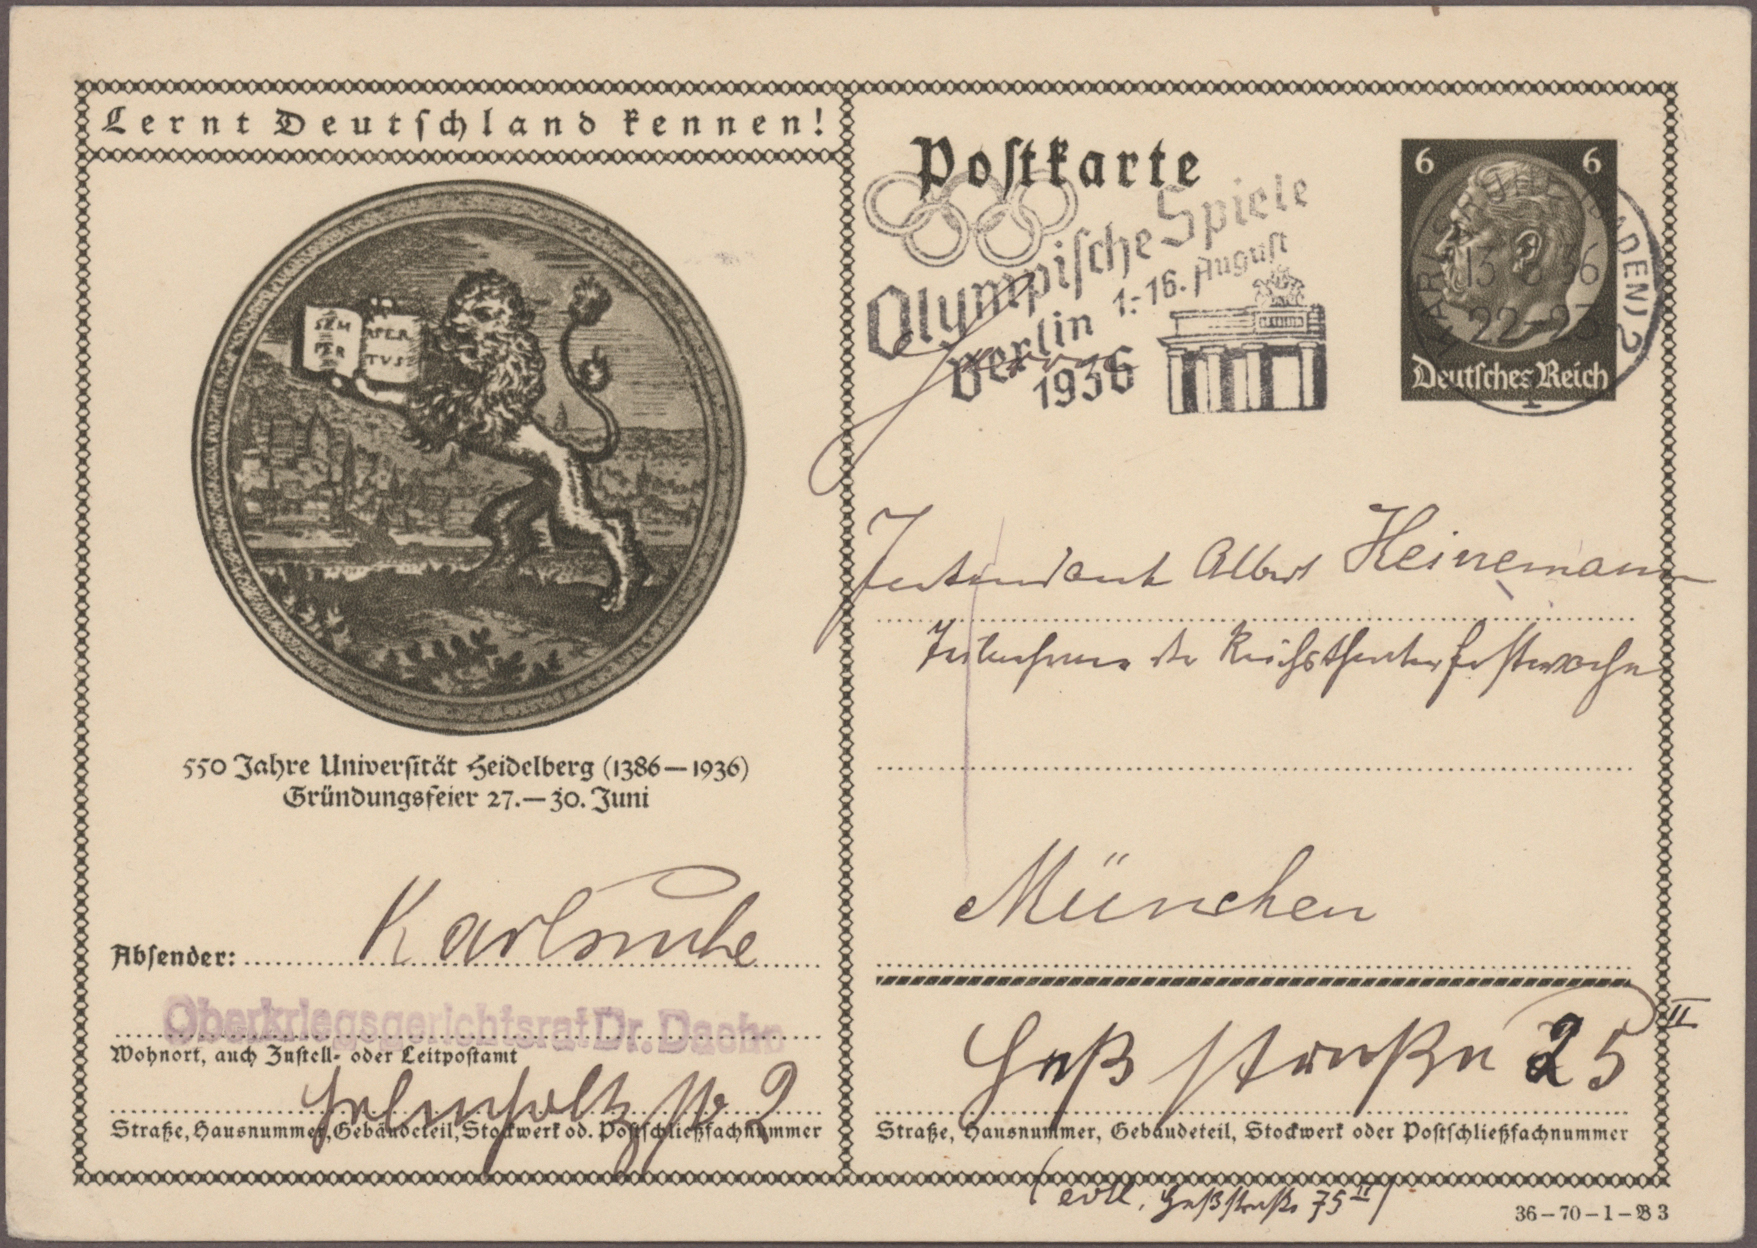 Lernt Deutschland kennen!
SEM
PER
APER
TVS
550 Jahre Universität Heidelberg (1386–1936)
Gründungsfeier 27.–30. Juni
Absender: Karlsruhe
Oberkriegsgerichtsrat Dr.
Wohnort, auch Zustell- oder Leitpostamt
Helmholtzstr 9
Straße, Hausnummer, Gebäudeteil, Stockwerk od. Postschließfachnummer
Postkarte
Olympische Spiele
Berlin 1.-16. August
1936
6 6
Deutsches Reich
KARLSRUHE (BADEN) 2
13 6 36
22-23
1
Intendant Albert Heinemann
Teilnehmer der Reichstheaterfestwoche
München
Heß straße 25 II
Straße, Hausnummer, Gebäudeteil, Stockwerk oder Postschließfachnummer
(evtl. Heßstraße 75 II)
36–70–1–B 3